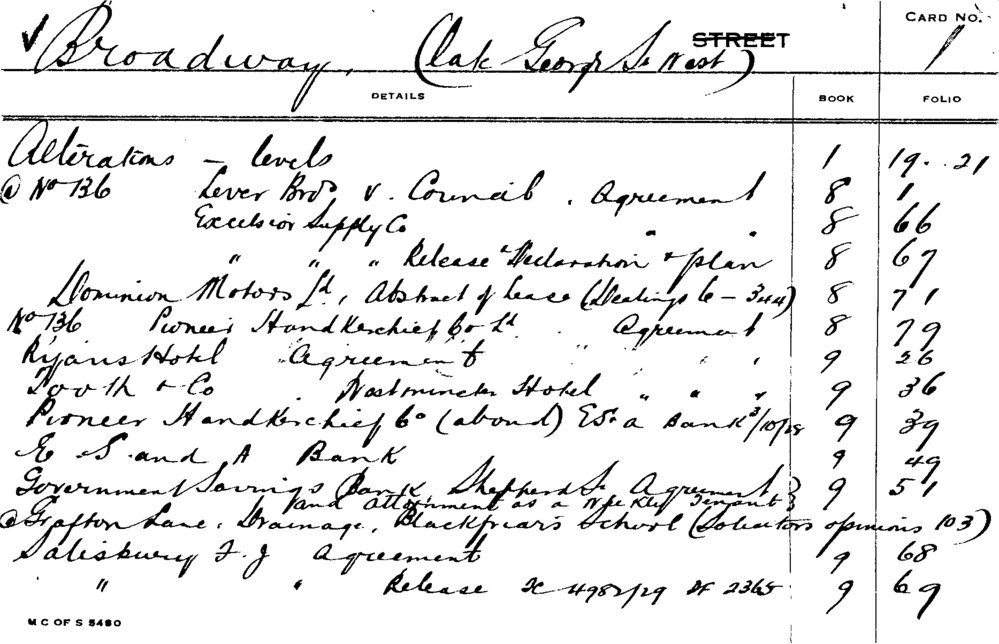 CARD NO.
√ Broadway, (late George St West) STREET 1
DETAILS BOOK FOLIO
Alterations - levels 1 19. 21
@ No 136 Lever Bros v. Council. Agreement 8 1
Excelsior Supply Co " " 8 66
" " " Release Declaration & plan 8 67
Dominion Motors Ld, Abstract of Lease (Dealings 6 - 344) 8 71
No 136 Pioneer Handkerchief Co Ld. Agreement 8 79
Ryans Hotel Agreement " " " 9 26
Tooth & Co Westminster Hotel " " " 9 36
Pioneer Handkerchief Co (abond) ES & A Bank 3/10/28 9 39
E S and A Bank 9 49
Government Savings Bank Shepherd St Agreement } 9 51
and attornment as a Wkly Tenant }
@ Grafton Lane. Drainage, Blackfriars School (Solicitors opinions 103)
Salisbury F. J Agreement 9 68
" " Release 4982/29 2365 9 69
M C OF S 5480